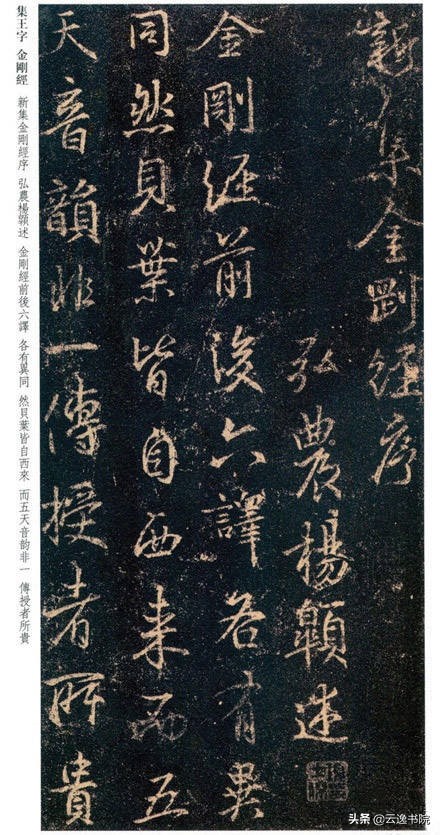 新集金剛經序
弘農楊顥述
金剛經前後六譯各有異
同然貝葉皆自西來而五
天音韻非一傳授者所貴
集王字 金剛經 新集金剛經序 弘農楊顥述 金剛經前後六譯 各有異同 然貝葉皆自西來 而五天音韵非一 傳授者所貴
头条 @云逸书院